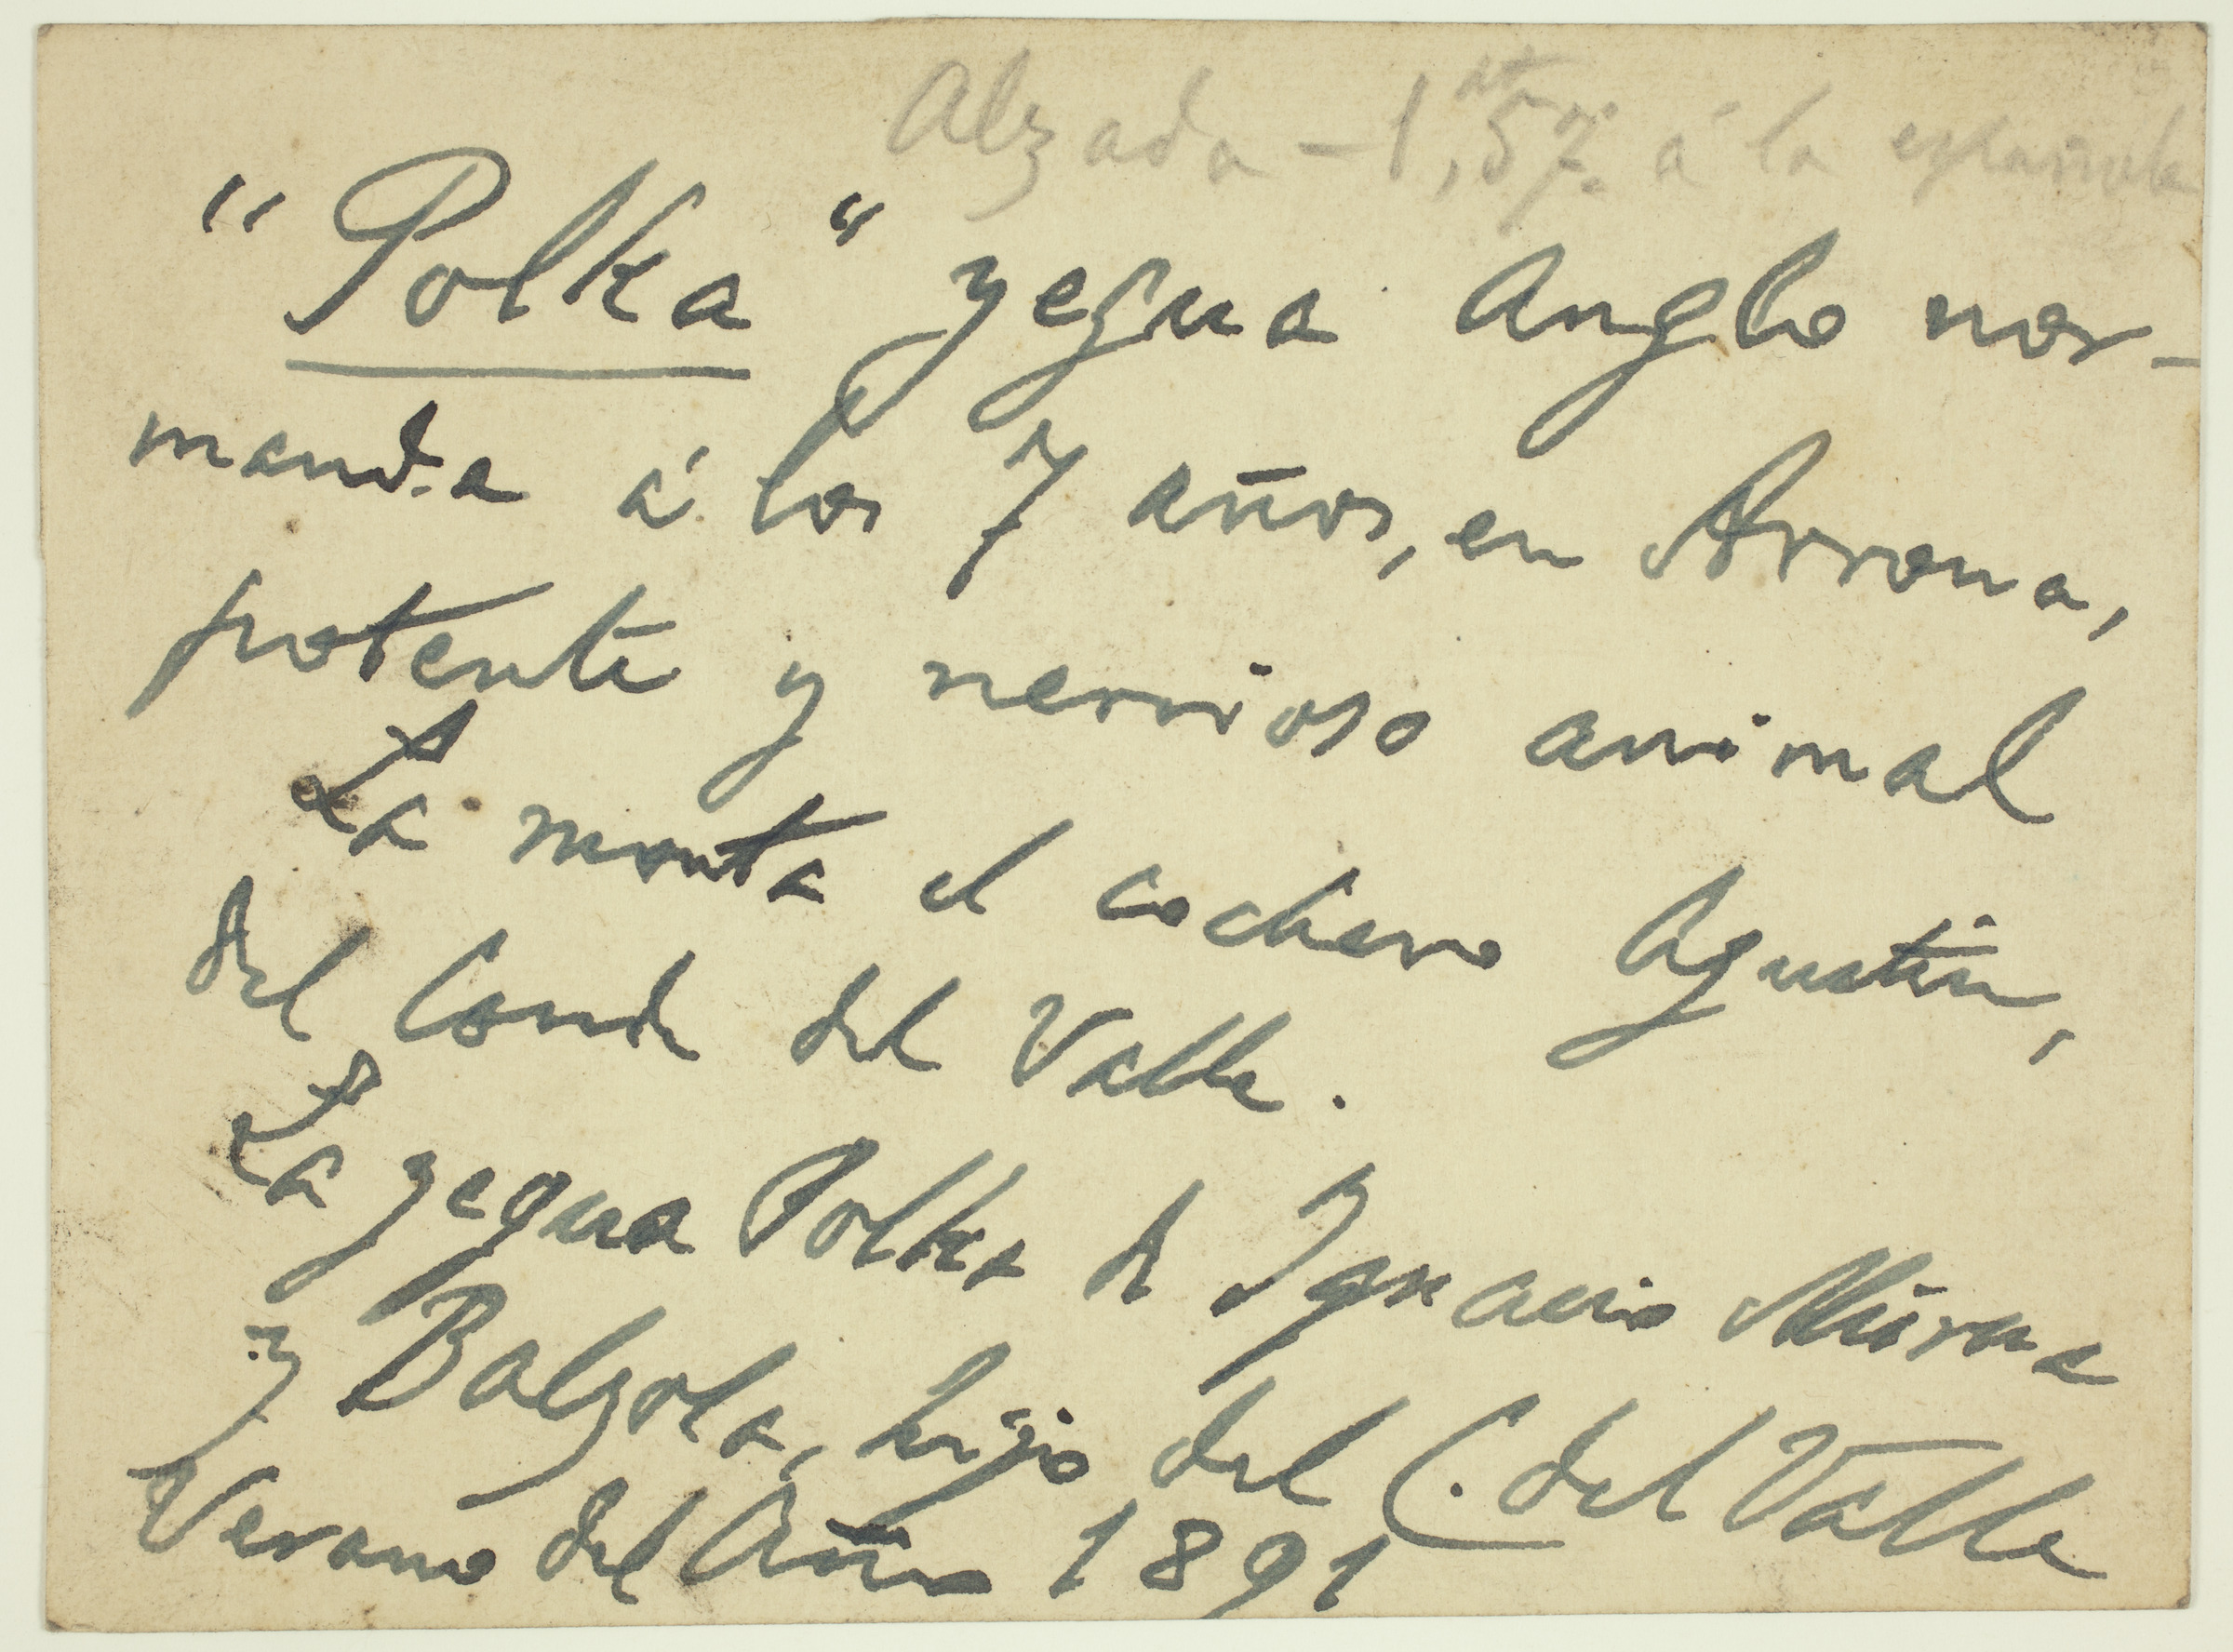 Alzada - 1,mt57. á la española
"Polka" yegua Anglo nor-
manda á los 7 años, en Arrona,
potente y nervioso animal
La monta el cochero Agustín,
del Conde del Valle.
La yegua Polka de Ignacio Múrua
y Balzola, hijo del C. del Valle
Verano del Año 1891